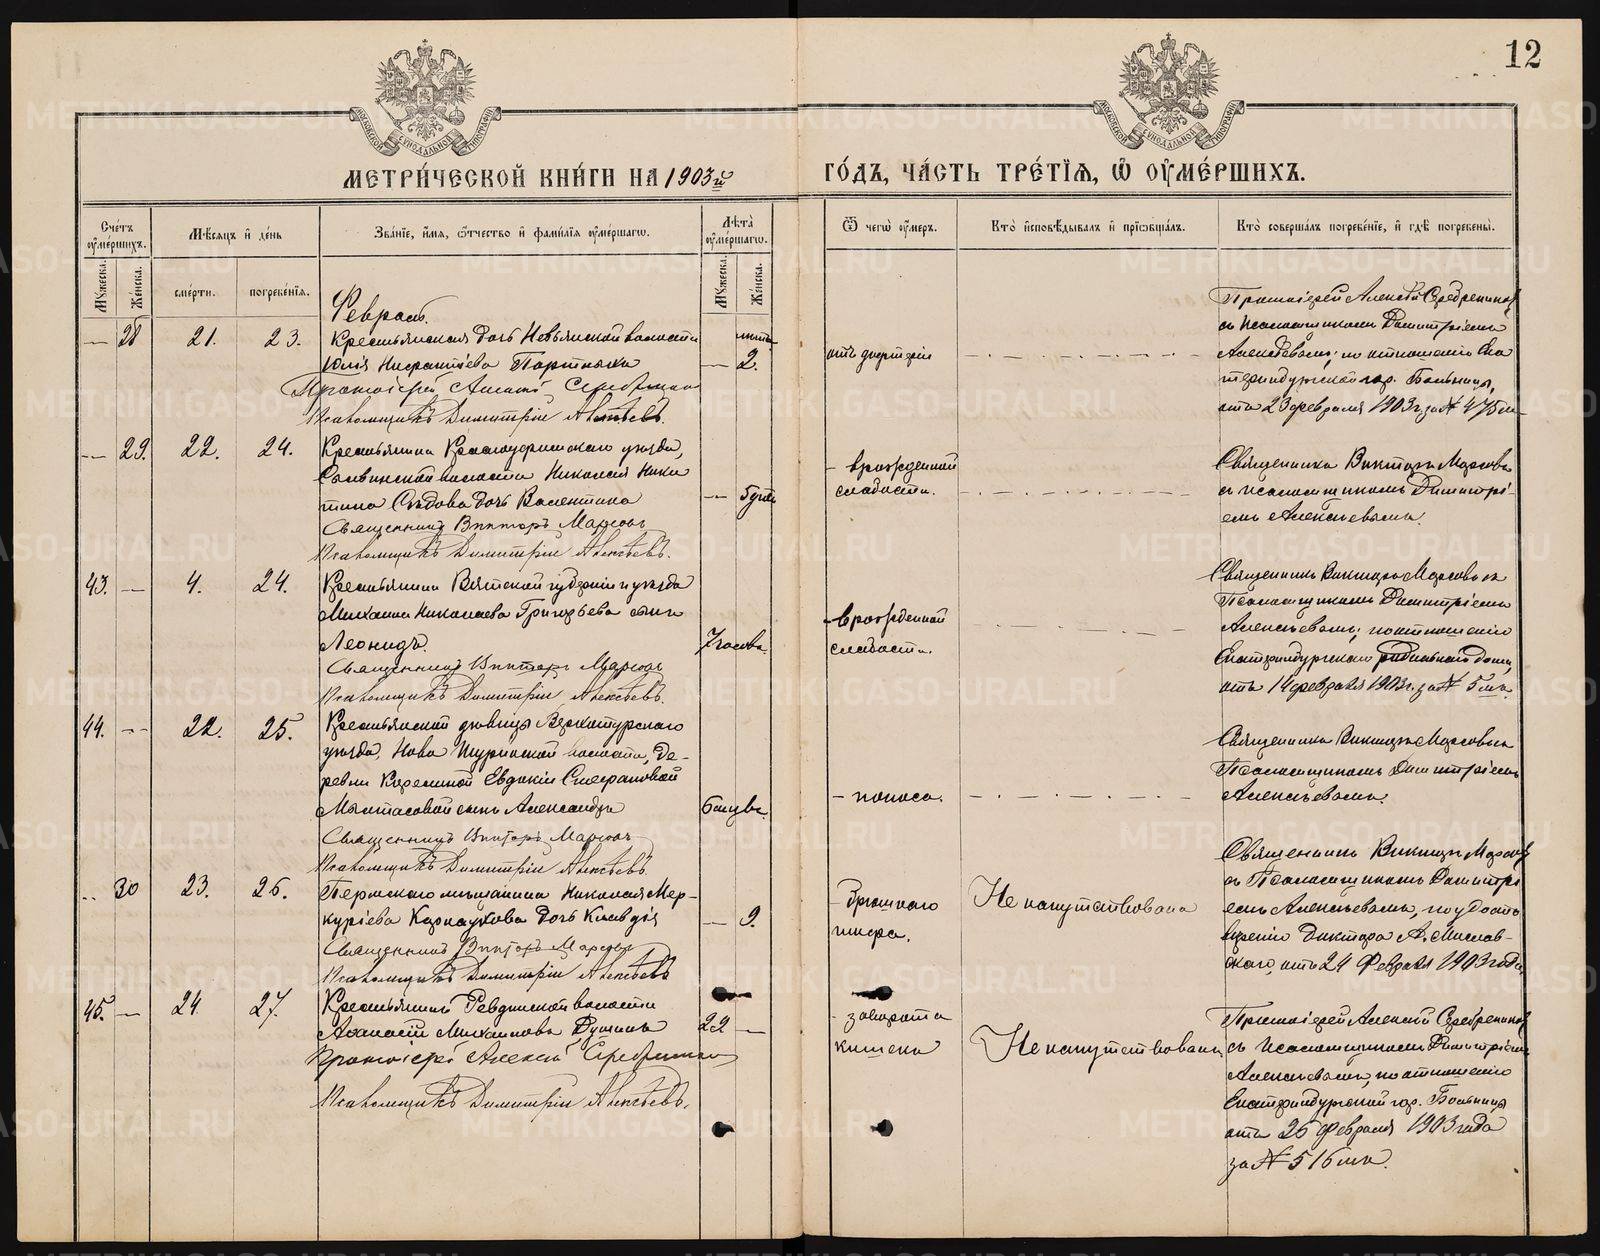 12
МЕТРИ́ЧЕСКОЙ КНИ́ГИ НА 1903й ГО́ДЪ, ЧА́СТЬ ТРЕ́ТІѦ, Ѿ ОУ҆МЕ́РШИХЪ.
Сче́тъ оу҆ме́ршихъ.
Мꙋ́жеска.
Же́нска.
Мѣ́сяцъ и҆ де́нь
сме́рти.
погребе́нїя.
Зва́нїе, и҆́мя, ѻ҆́тчество и҆ фами́лїя оу҆ме́ршагѡ.
Лѣ́та оу҆ме́ршагѡ.
Мꙋ́жеска.
Же́нска.
Ѿ чегѡ̀ оу҆́меръ.
Кто̀ и҆сповѣ́дывалъ и҆ прїѡбща́лъ.
Кто̀ соверша́лъ погребе́нїе, и҆ гдѣ̀ погребены̀.
Февраль.
— 28 21. 23. Крестьянская дочь Невьянской волости
Юлія
— 2.
отъ дифтеріи
Протоіерей Алексій Серебренников
Псаломщикъ Димитрій Алексѣевъ.
Протоіерей Алексій Серебренников
съ псаломщикомъ Димитріемъ
Алексѣевымъ; по отношенію Ека
теринбургской гор. Больницы,
отъ 23 февраля 1903 г. за № 475
— 29. 22. 24. Крестьянина Красноуфимскаго уѣзда,
волости Николая Ники
тина Сѣдова дочь Валентина
Священникъ Викторъ
Псаломщикъ Димитрій Алексѣевъ.
- врожденной
слабости.
Священникъ Викторъ
съ псаломщикомъ Димитрі-
емъ Алексѣевымъ.
43. — 4. 24. Крестьянина Вятской губерніи и уѣзда
Михаила Николаева Григорьева сынъ
Леонидъ.
7 часовъ.
Священникъ Викторъ
Псаломщикъ Димитрій Алексѣевъ.
- врожденной
слабости.
Священникъ Викторъ
Псаломщикомъ Димитріемъ
Алексѣевымъ; по отношенію
Екатеринбургскаго родильнаго дома,
отъ 14 февраля 1903 г. за № 5
44. — 22. 25. Крестьянской дѣвицы Верхотурскаго
уѣзда, Ново Туринской волости, де-
ревни Карелиной Евдокіи Стефановой
сынъ Александръ
Священникъ Викторъ
Псаломщикъ Димитрій Алексѣевъ.
- поноса.
Священникъ Викторъ
Псаломщикомъ Димитріемъ
Алексѣевымъ.
.. 30 23. 26. Пермскаго мѣщанина Николая Мер-
куріева Карнаухова дочь Клавдія
— 9.
Священникъ Викторъ
Псаломщикъ Димитрій Алексѣевъ
- Брюшного
тифа.
Не напутствована
Священникъ Викторъ
съ Псаломщикомъ Димитрі
емъ Алексѣевымъ, по удосто
вѣренію Доктора А. Мислав-
скаго, отъ 24 Февраля 1903 года
45. — 24. 27. Крестьянинъ Ревдинской волости
Аѳанасій Михаиловъ
22 —
Протоіерей Алексій Серебренников
Псаломщикъ Димитрій Алексѣевъ.
- заворота
кишекъ
Не напутствованъ
Протоіерей Алексій Серебренников
съ псаломщикомъ Димитріемъ
Алексѣевымъ, по отношенію
Екатеринбургской гор. Больницы
отъ 26 Февраля 1903 года
за № 516